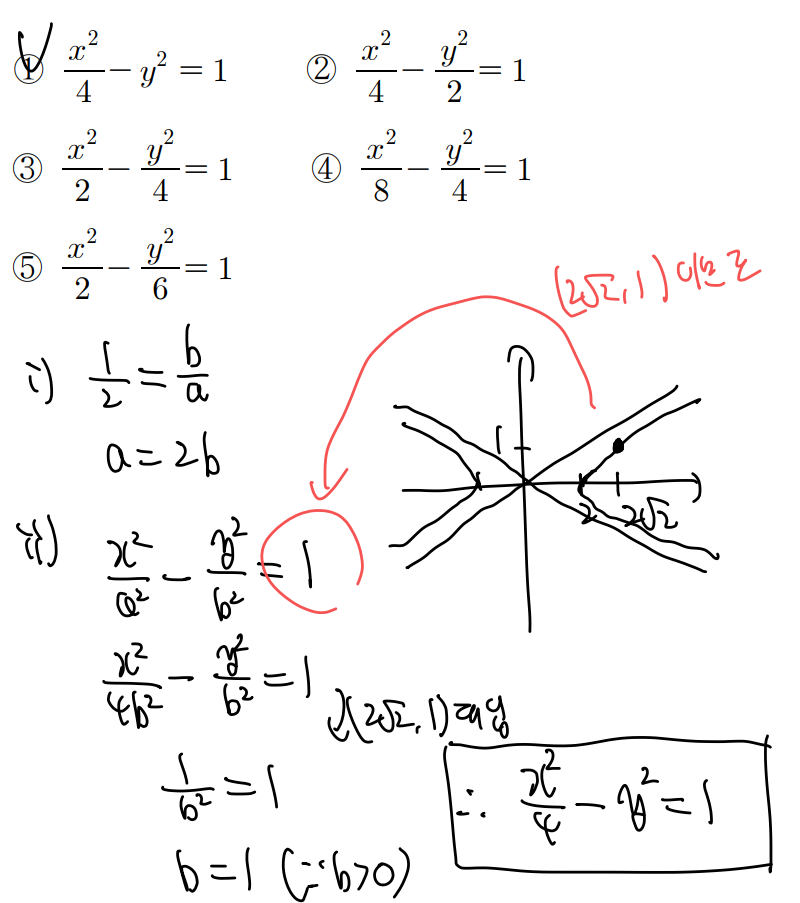 ① x²/4 - y² = 1 ② x²/4 - y²/2 = 1
③ x²/2 - y²/4 = 1 ④ x²/8 - y²/4 = 1
⑤ x²/2 - y²/6 = 1
(2√2, 1) 이므로
i) 1/2 = b/a
a = 2b
1
2 2√2
ii) x²/a² - y²/b² = 1
x²/4b² - y²/b² = 1
(2√2, 1) 대입
1/b² = 1
b = 1 (∵ b>0)
∴ x²/4 - y² = 1